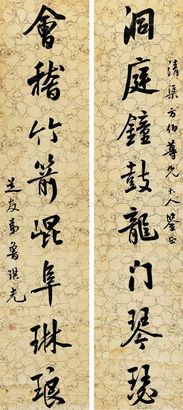 清渠方伯尊兄大人鑒正
洞庭鐘鼓龍门琴瑟
會稽竹箭崐阜琳琅
芝友弟魯琪光